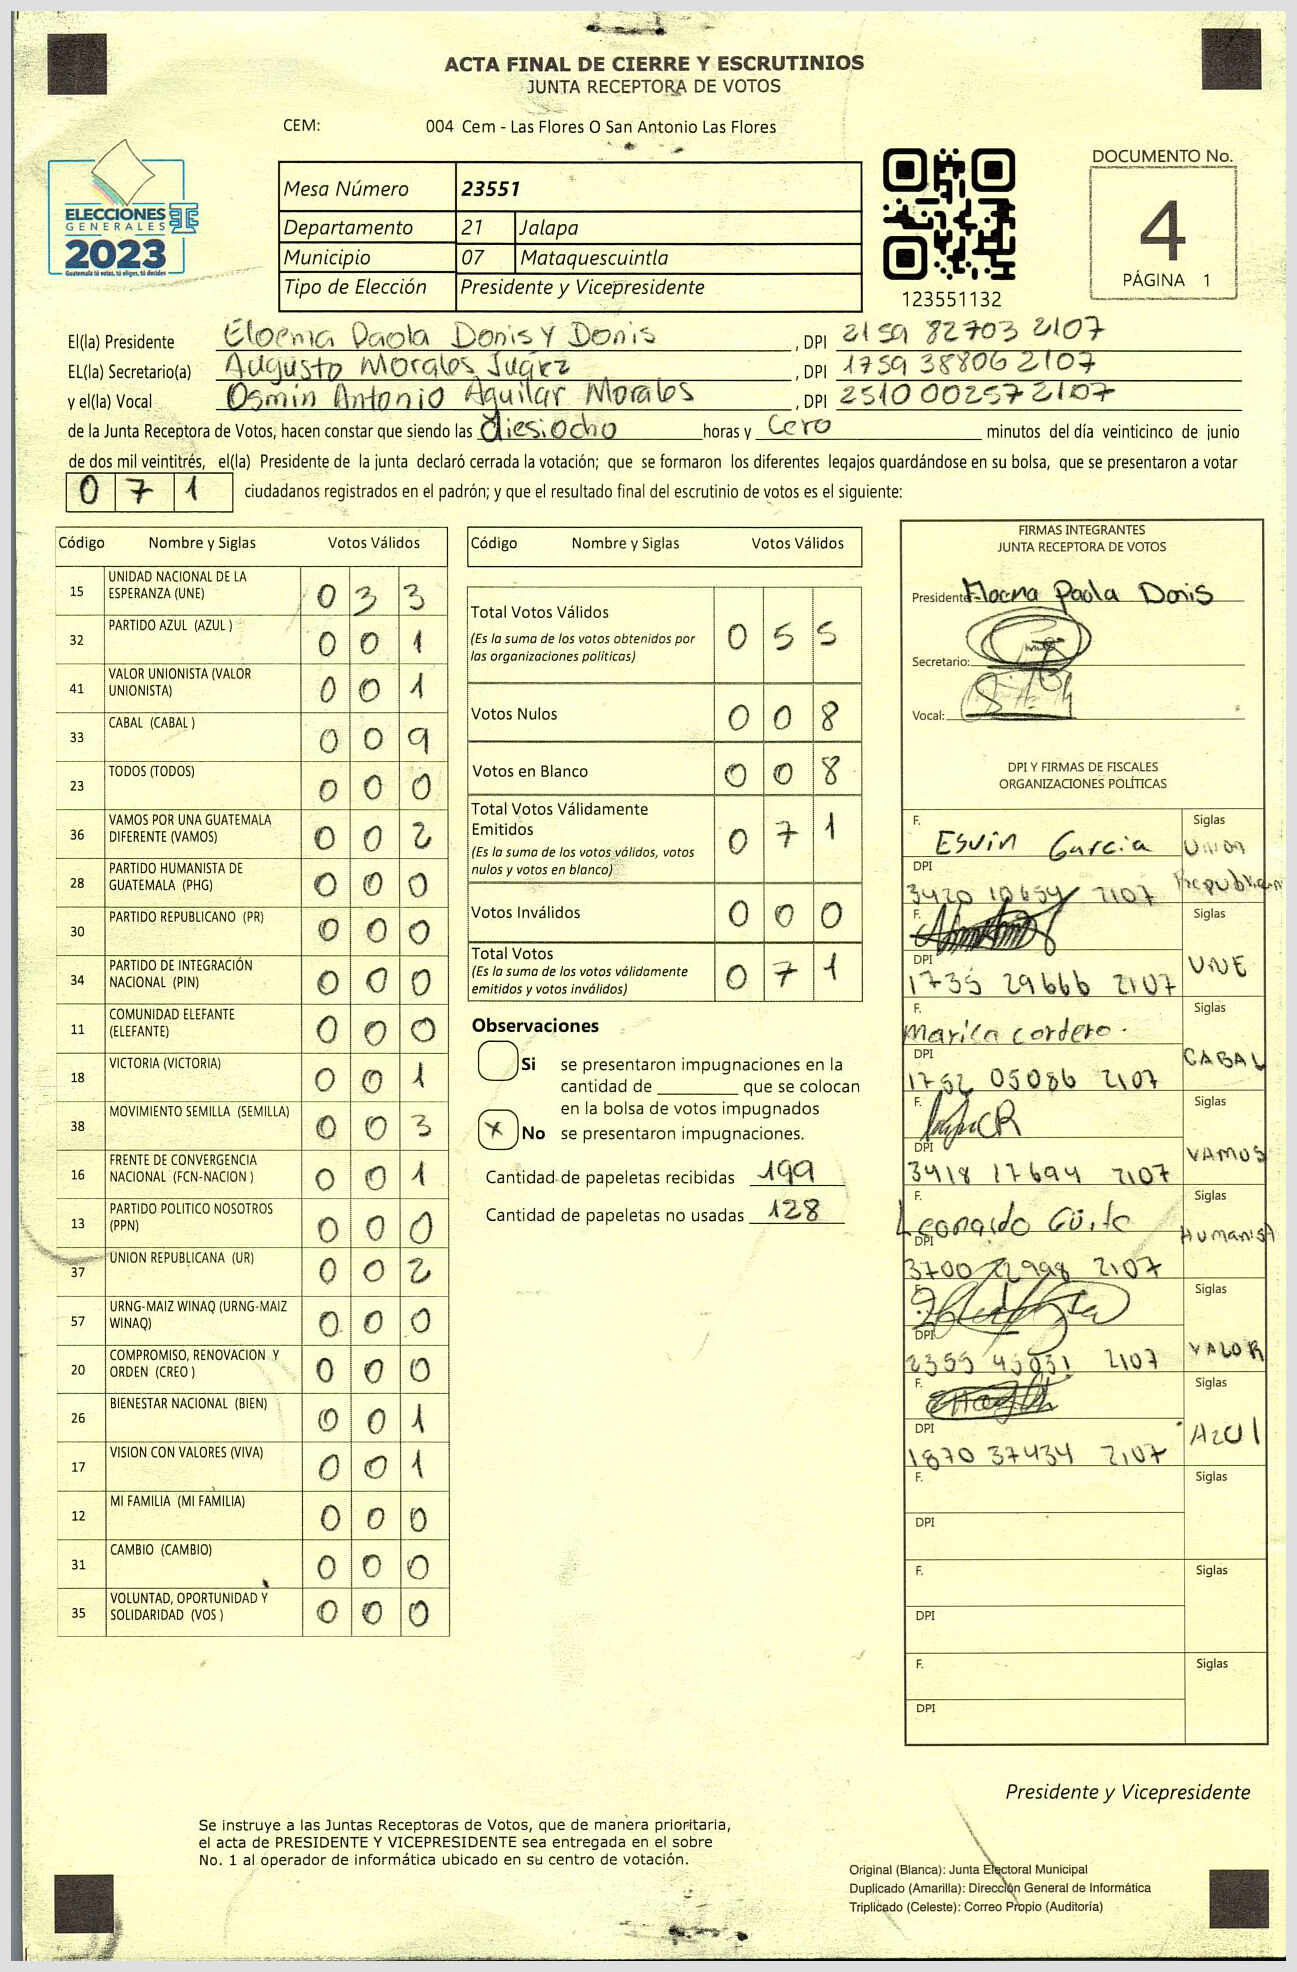 ACTA FINAL DE CIERRE Y ESCRUTINIOS
JUNTA RECEPTORA DE VOTOS
CEM: 004 Cem - Las Flores O San Antonio Las Flores
ELECCIONES
GENERALES
2023
Guatemala tú votas, tú eliges, tú decides
Mesa Número 23551
Departamento 21 Jalapa
Municipio 07 Mataquescuintla
Tipo de Elección Presidente y Vicepresidente
123551132
DOCUMENTO No.
4
PÁGINA 1
El(la) Presidente Paola Donis y Donis , DPI 2159 82703 2107
EL(la) Secretario(a) Augusto Morales Juárez , DPI 1759 38806 2107
y el(la) Vocal Osmin Antonio Aguilar Morales , DPI 2510 00257 2107
de la Junta Receptora de Votos, hacen constar que siendo las diesiocho horas y Cero minutos del día veinticinco de junio
de dos mil veintitrés, el(la) Presidente de la junta declaró cerrada la votación; que se formaron los diferentes legajos guardándose en su bolsa, que se presentaron a votar
0 7 1 ciudadanos registrados en el padrón; y que el resultado final del escrutinio de votos es el siguiente:
Código Nombre y Siglas Votos Válidos
15 UNIDAD NACIONAL DE LA
ESPERANZA (UNE) 0 3 3
32 PARTIDO AZUL (AZUL ) 0 0 1
41 VALOR UNIONISTA (VALOR
UNIONISTA) 0 0 1
33 CABAL (CABAL ) 0 0 9
23 TODOS (TODOS) 0 0 0
36 VAMOS POR UNA GUATEMALA
DIFERENTE (VAMOS) 0 0 2
28 PARTIDO HUMANISTA DE
GUATEMALA (PHG) 0 0 0
30 PARTIDO REPUBLICANO (PR) 0 0 0
34 PARTIDO DE INTEGRACIÓN
NACIONAL (PIN) 0 0 0
11 COMUNIDAD ELEFANTE
(ELEFANTE) 0 0 0
18 VICTORIA (VICTORIA) 0 0 1
38 MOVIMIENTO SEMILLA (SEMILLA) 0 0 3
16 FRENTE DE CONVERGENCIA
NACIONAL (FCN-NACION ) 0 0 1
13 PARTIDO POLITICO NOSOTROS
(PPN) 0 0 0
37 UNION REPUBLICANA (UR) 0 0 2
57 URNG-MAIZ WINAQ (URNG-MAIZ
WINAQ) 0 0 0
20 COMPROMISO, RENOVACION Y
ORDEN (CREO ) 0 0 0
26 BIENESTAR NACIONAL (BIEN) 0 0 1
17 VISION CON VALORES (VIVA) 0 0 1
12 MI FAMILIA (MI FAMILIA) 0 0 0
31 CAMBIO (CAMBIO) 0 0 0
35 VOLUNTAD, OPORTUNIDAD Y
SOLIDARIDAD (VOS ) 0 0 0
Código Nombre y Siglas Votos Válidos
Total Votos Válidos 0 5 5
(Es la suma de los votos obtenidos por
las organizaciones politicas)
Votos Nulos 0 0 8
Votos en Blanco 0 0 8
Total Votos Válidamente
Emitidos 0 7 1
(Es la suma de los votos válidos, votos
nulos y votos en blanco)
Votos Inválidos 0 0 0
Total Votos 0 7 1
(Es la suma de los votos válidamente
emitidos y votos inválidos)
Observaciones
Si se presentaron impugnaciones en la
cantidad de ________ que se colocan
en la bolsa de votos impugnados
x No se presentaron impugnaciones.
Cantidad de papeletas recibidas 199
Cantidad de papeletas no usadas 128
FIRMAS INTEGRANTES
JUNTA RECEPTORA DE VOTOS
Presidente Paola Donis
Secretario:
Vocal:
DPI Y FIRMAS DE FISCALES
ORGANIZACIONES POLÍTICAS
F. Esvin Garcia Siglas Union
DPI
3420 10654 2107
F. Siglas
DPI UNE
1735 29666 2107
F. Siglas
Marica cordero.
DPI CABAL
1752 05086 2107
F. Siglas
DPI VAMOS
3418 17694 2107
F. Siglas
Leonardo
DPI
3700 22998 2107
F. Siglas
DPI VALOR
2355 45031 2107
F. Siglas
DPI Azul
1870 37434 2107
F. Siglas
DPI
F. Siglas
DPI
F. Siglas
DPI
Presidente y Vicepresidente
Se instruye a las Juntas Receptoras de Votos, que de manera prioritaria,
el acta de PRESIDENTE Y VICEPRESIDENTE sea entregada en el sobre
No. 1 al operador de informática ubicado en su centro de votación.
Original (Blanca): Junta Electoral Municipal
Duplicado (Amarilla): Dirección General de Informática
Triplicado (Celeste): Correo Propio (Auditoría)